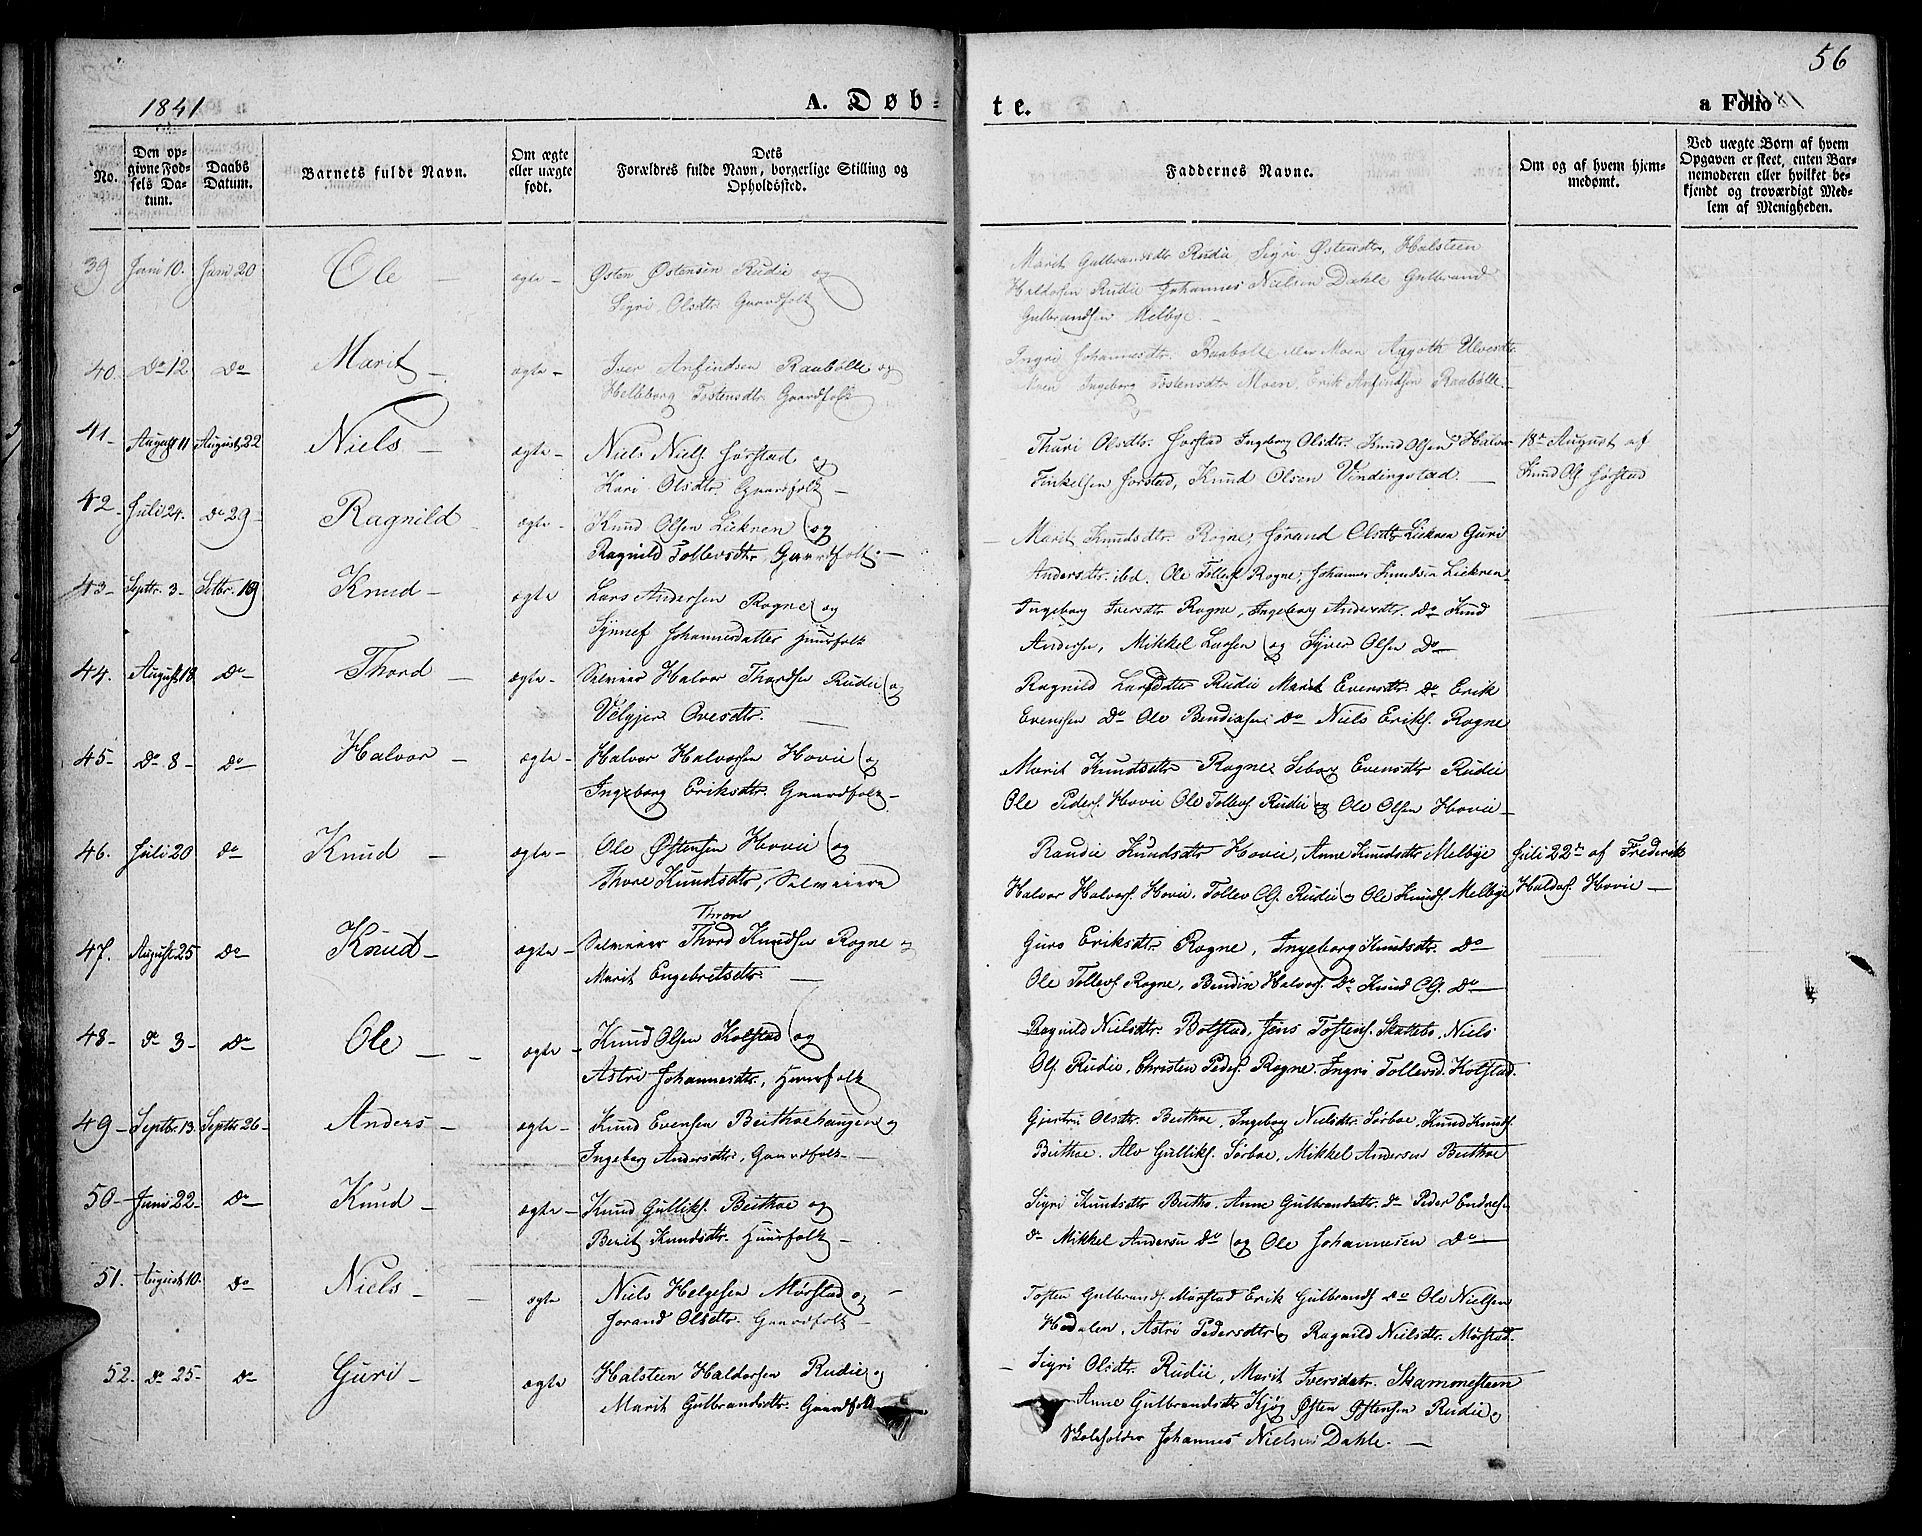 56
1841
A. Døb=
te.
a Folio
No.
Den op-
givne Fød-
sels Da-
tum.
Daabs
Datum.
Barnets fulde Navn.
Om ægte
eller uægte
født.
Dets
Forældres fulde Navn, borgerlige Stilling og
Opholdssted.
Faddernes Navne.
Om og af hvem hjem-
medømt.
Ved uægte Børn af hvem
Opgaven er skeet, enten Bar-
nemoderen eller hvilket be-
kjendt og troværdigt Med-
lem af Menigheden.
39 Juni 10. Juni 20 Ole – ægte – Østen Østensen Rudie og
Sigri Olsdtr. Gaardfolk
Marit Gulbrandsdtr Rudie, Sigri Østensdtr, Halsteen
Haldosen Rudie Johannes Nielsen Dahle Gulbrand
Gulbrandsen Melbye. –
40. Do 12 Do Marit – ægte – Iver Anfindsen Raabølle og
Helleborg Tostensdtr. Gaardfolk
Ingri Johannesdtr. Raabølle eller Moen Aagoth Ulvesdtr.
Moen Ingeborg Tostensdtr Moen, Erik Anfindsen Raabølle.
41– August 11 August 22 Niels – ægte – Niels Niels. Jorstad og
Kari Olsdtr. Gaardfolk –
Thuri Olsdtr. Jorstad Ingeborg Olsdtr. Knud Olsen Halvor 18de August af
Finkelsen Jorstad, Knud Olsen Vindingstad. – Knud Ols. Jorstad
42. Juli 24. Do 29– Ragnild – ægte – Knud Olsen Liekren og
Ragnild Tollevsdtr. Gaardfolk. –
Marit Knudsdtr. Rogne, Jorand Olsdtr Liekren Guri
Andersdtr. ibd. Ole Tollefs. Rogne, Johannes Knudsen Liekren
43– Septbr. 3– Setbr. 19 Knud – ægte Lars Andersen Rogne og
Synnef Johannesdatter Huusfolk
Ingeborg Iversdtr Rogne, Ingeborg Andersdtr. Do Knud
Andersen, Mikkel Larsen og Syver Olsen Do
44. August 18 Do – Thord – ægte – Selveier Halvor Thordsen Rudie og
Velgjer Ovesdtr. –
Ragnild Larsdtr Rudie Marit Evensdtr. Do Erik
Evenssen Do Ole Bendixsen Do Niels Eriks. Rogne
45– Do 8 – Do Halvor – ægte – Halvor Halvorsen Hovie og
Ingeborg Eriksdtr. Gaardfolk –
Marit Knudsdtr Rogne Sebor Evensdtr. Rudie
Ole Peders. Hovie Ole Tollevs. Rudie og Ole Olsen Hovie –
46. Juli 20 do Knud – ægte – Ole Østensen Hovie og
Thore Knudsdtr, Selveiere
Randie Knudsdtr Hovie, Anne Knudsdtr Melbye Juli 22de af Frederik
Halvor Halvors. Hovie, Tollev Ols. Rudie og Ole Knuds. Melbye Haldos. Hovie –
Throre
47. August 25 Do Knud – ægte – Selveier Thord Knudsen Rogne og
Marit Engebretsdtr. –
Guro Eriksdtr Rogne, Ingeborg Knudsdtr. Do
Ole Tollevs. Rogne, Bendix Halvors. Do Knud Ols. Do
48– do 3 – Do Ole – ægte – Knud Olsen Kolstad og
Astri Johannesdtr., Huusfolk
Ragnild Nielsdtr. Bolstad, Jens Tostens. Skattebo, Niels
Ols. Rudie. Christen Peders. Rogne Ingri Tollevsd. Kolstad
49– Septbr. 13. Septbr 26– Anders – ægte – Knud Evensen Beithoehaugen og
Ingeborg Andersdtr, Gaardfolk –
Gjertru Olsdtr. Beithoe, Ingeborg Nielsdtr. Sørboe, Knud Knuds.
Beithoe. Alv Gulliks. Sørboe, Mikkel Andersen Beithoe
50– Juni 22– Do Knud – ægte – Knud Gulliks. Beithoe og
Berit Knudsdtr. Huusfolk –
Sigri Knudsdtr Beitho. Anne Gulbrandsdtr. do Peder Endres.
do Mikkel Andersen Do og Ole Johannesen Do
51. August 10. Do Niels – ægte Niels Helgesen Mørstad og
Jorand Olsdtr. Gaardfolk –
Tosten Gulbrands. Mørstad Erik Gulbrands. Do Ole Nielsen
Hedalen, Astri Pedersdtr og Ragnild Nielsdtr. Mørstad.
52. Do 25– Do Guri – ægte Halsteen Haldorsen Rudie og
Marit Gulbrandsdtr. Gaardfolk
Sigri Olsdtr. Rudie, Marit Iversdatr. Skamonesteen
Anne Gulbrandsdtr Kjøg Østen Østensen Rudie og
Skoleholder Johannes Nielsen Dahle. –